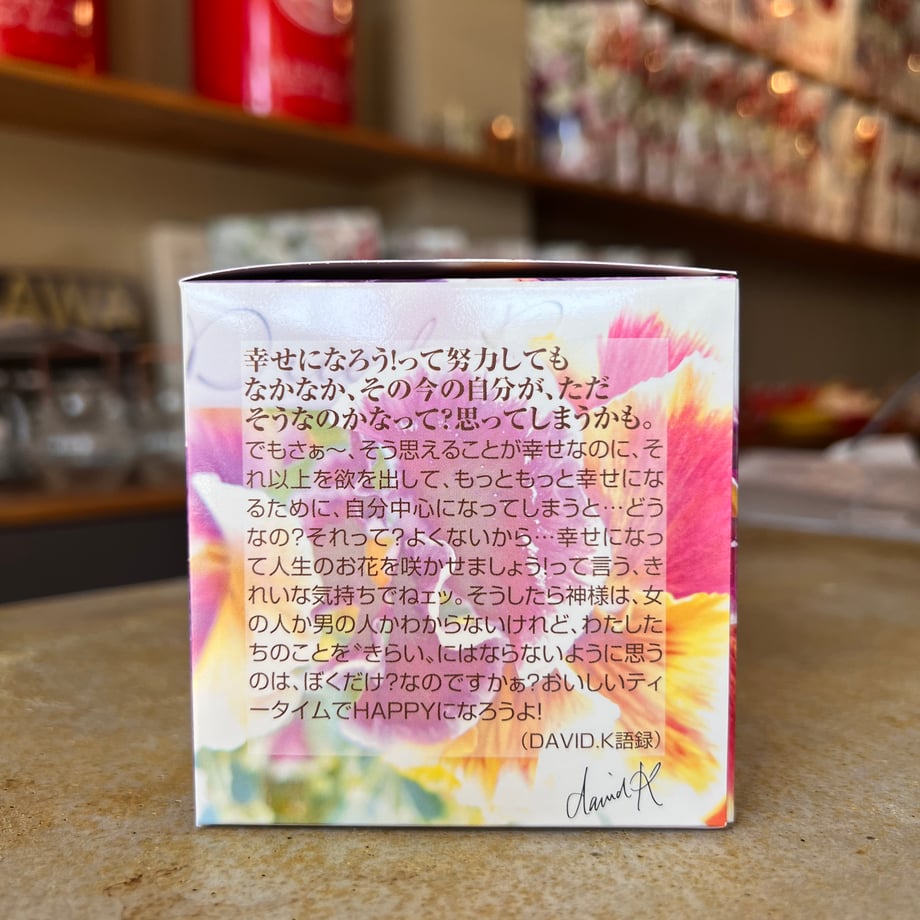 幸せになろう!って努力しても
なかなか、その今の自分が、ただ
そうなのかなって?思ってしまうかも。
でもさぁ〜、そう思えることが幸せなのに、そ
れ以上を欲を出して、もっともっと幸せにな
るために、自分中心になってしまうと…どう
なの?それって?よくないから…幸せになっ
て人生のお花を咲かせましょう!って言う、き
れいな気持ちでねェッ。そうしたら神様は、女
の人か男の人かわからないけれど、わたした
ちのことを〝きらい〟にはならないように思う
のは、ぼくだけ?なのですかぁ?おいしいティ
ータイムでHAPPYになろうよ!
(DAVID.K語録)
david K